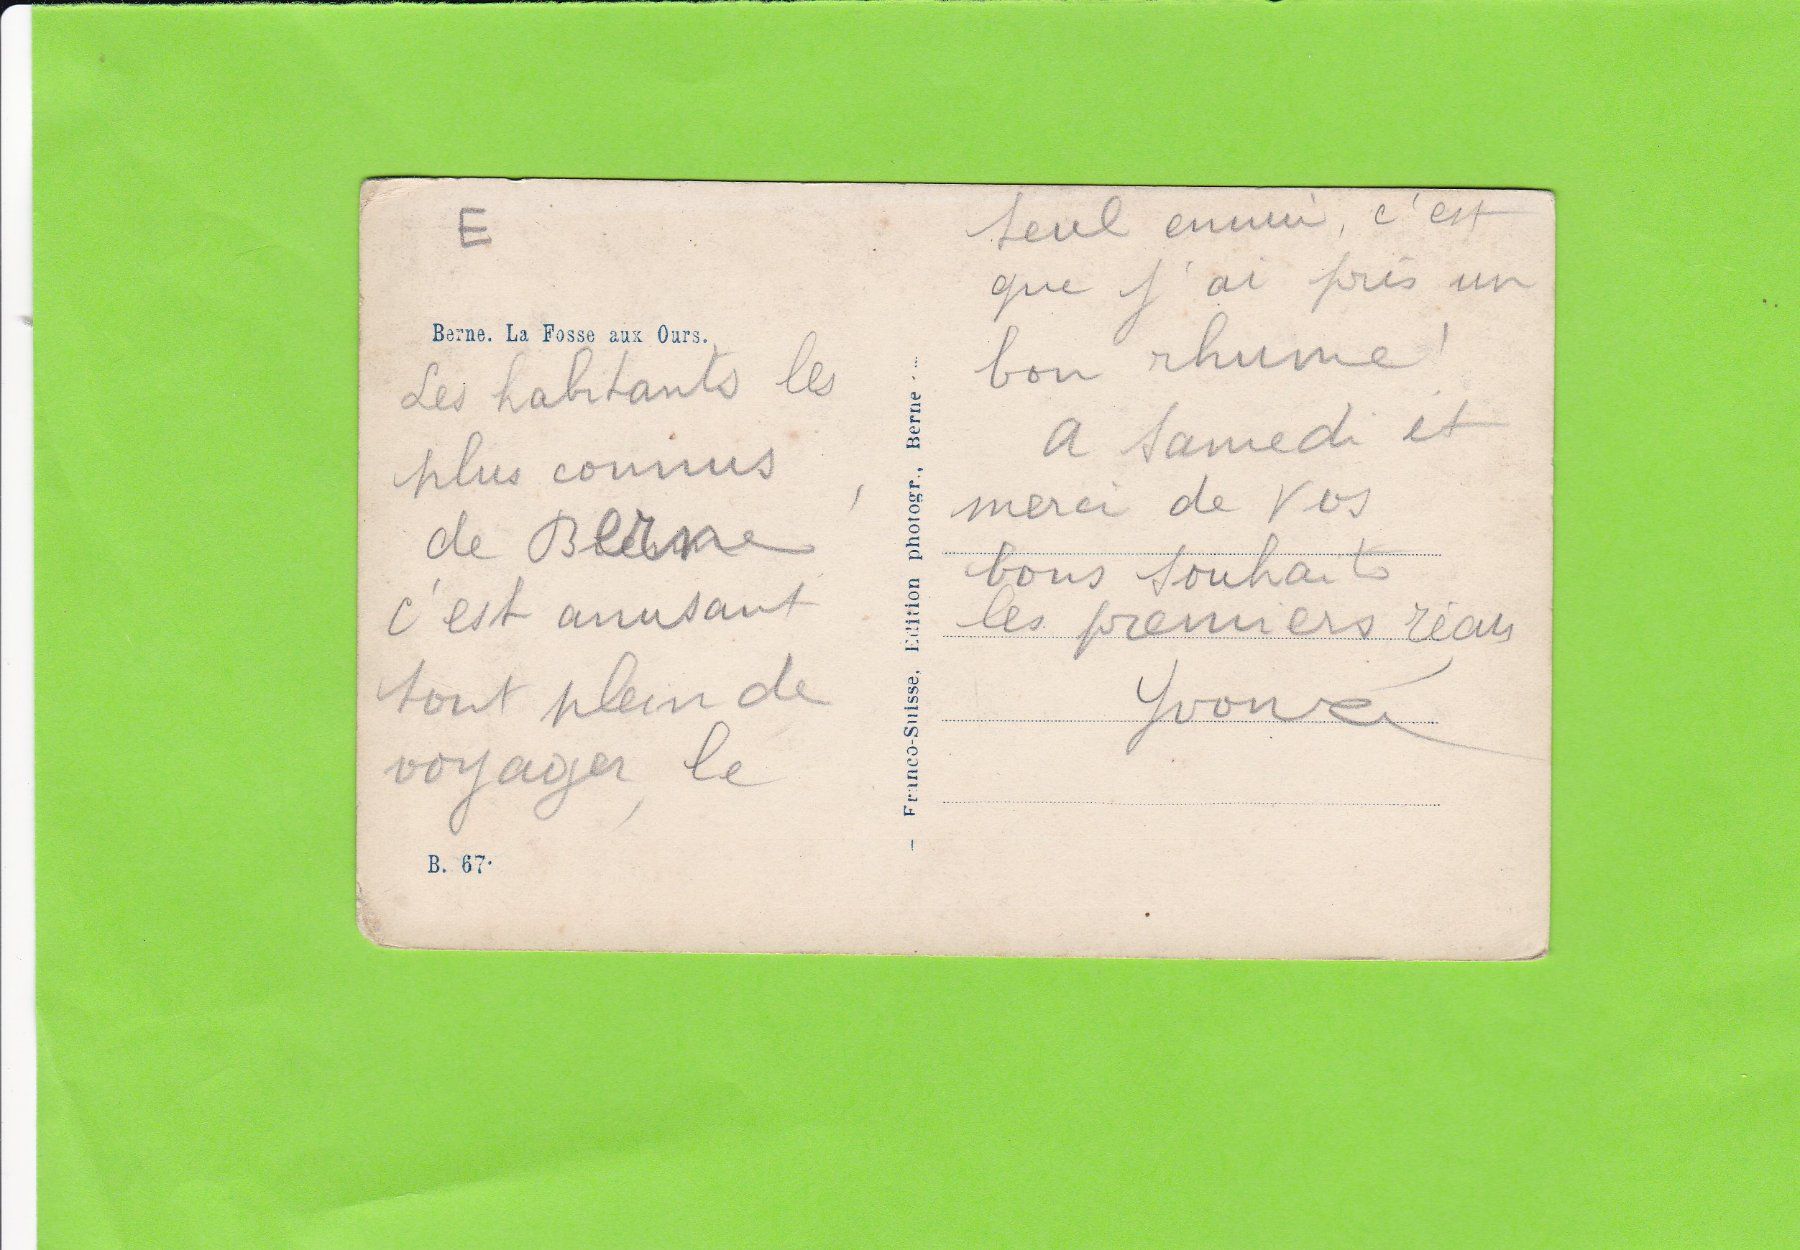 E
Berne. La Fosse aux Ours.
Les habitants les
plus connus
de Berne,
c'est amusant
tout plein de
voyager, le
B. 67.
— Franco-Suisse, Edition photogr., Berne. —
seul ennui, c'est
que j'ai pris un
bon rhume!
A samedi et
merci de vos
bons souhaits
les premiers
Yvonne